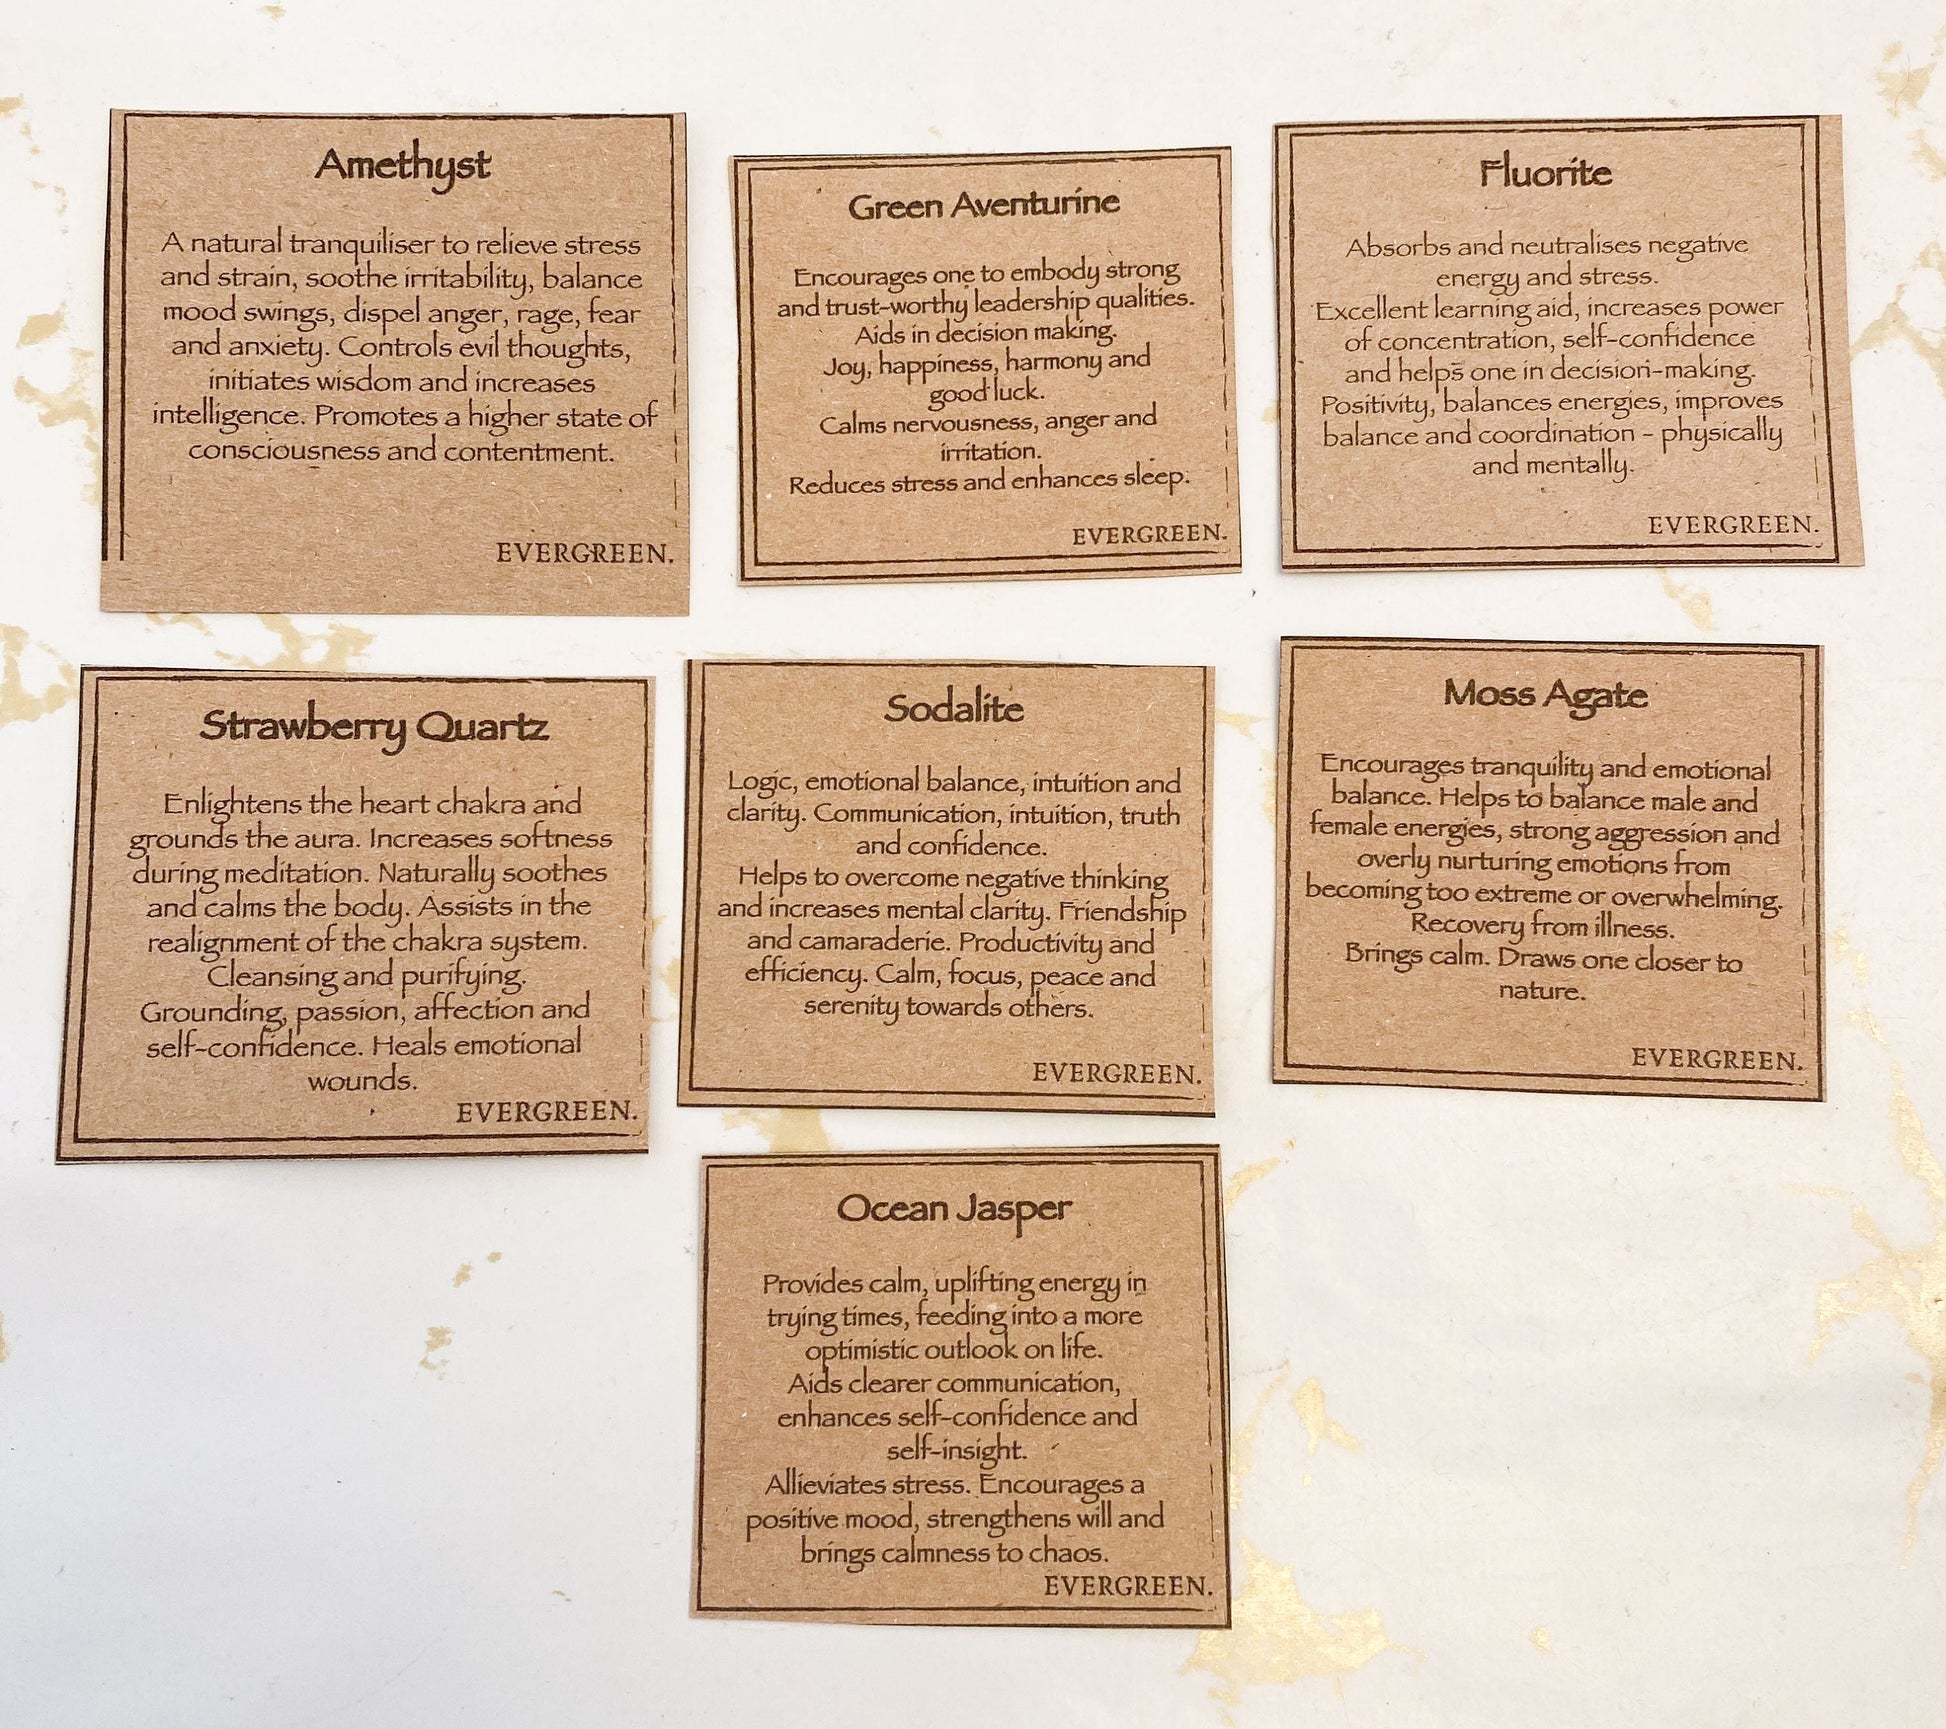 Amethyst
A natural tranquiliser to relieve stress
and strain, soothe irritability, balance
mood swings, dispel anger, rage, fear
and anxiety. Controls evil thoughts,
initiates wisdom and increases
intelligence. Promotes a higher state of
consciousness and contentment.
EVERGREEN.
Green Aventurine
Encourages one to embody strong
and trust-worthy leadership qualities.
Aids in decision making.
Joy, happiness, harmony and
good luck.
Calms nervousness, anger and
irritation.
Reduces stress and enhances sleep.
EVERGREEN.
Fluorite
Absorbs and neutralises negative
energy and stress.
Excellent learning aid, increases power
of concentration, self-confidence
and helps one in decision-making.
Positivity, balances energies, improves
balance and coordination - physically
and mentally.
EVERGREEN.
Strawberry Quartz
Enlightens the heart chakra and
grounds the aura. Increases softness
during meditation. Naturally soothes
and calms the body. Assists in the
realignment of the chakra system.
Cleansing and purifying.
Grounding, passion, affection and
self-confidence. Heals emotional
wounds.
EVERGREEN.
Sodalite
Logic, emotional balance, intuition and
clarity. Communication, intuition, truth
and confidence.
Helps to overcome negative thinking
and increases mental clarity. Friendship
and camaraderie. Productivity and
efficiency. Calm, focus, peace and
serenity towards others.
EVERGREEN.
Moss Agate
Encourages tranquility and emotional
balance. Helps to balance male and
female energies, strong aggression and
overly nurturing emotions from
becoming too extreme or overwhelming.
Recovery from illness.
Brings calm. Draws one closer to
nature.
EVERGREEN.
Ocean Jasper
Provides calm, uplifting energy in
trying times, feeding into a more
optimistic outlook on life.
Aids clearer communication,
enhances self-confidence and
self-insight.
Allieviates stress. Encourages a
positive mood, strengthens will and
brings calmness to chaos.
EVERGREEN.